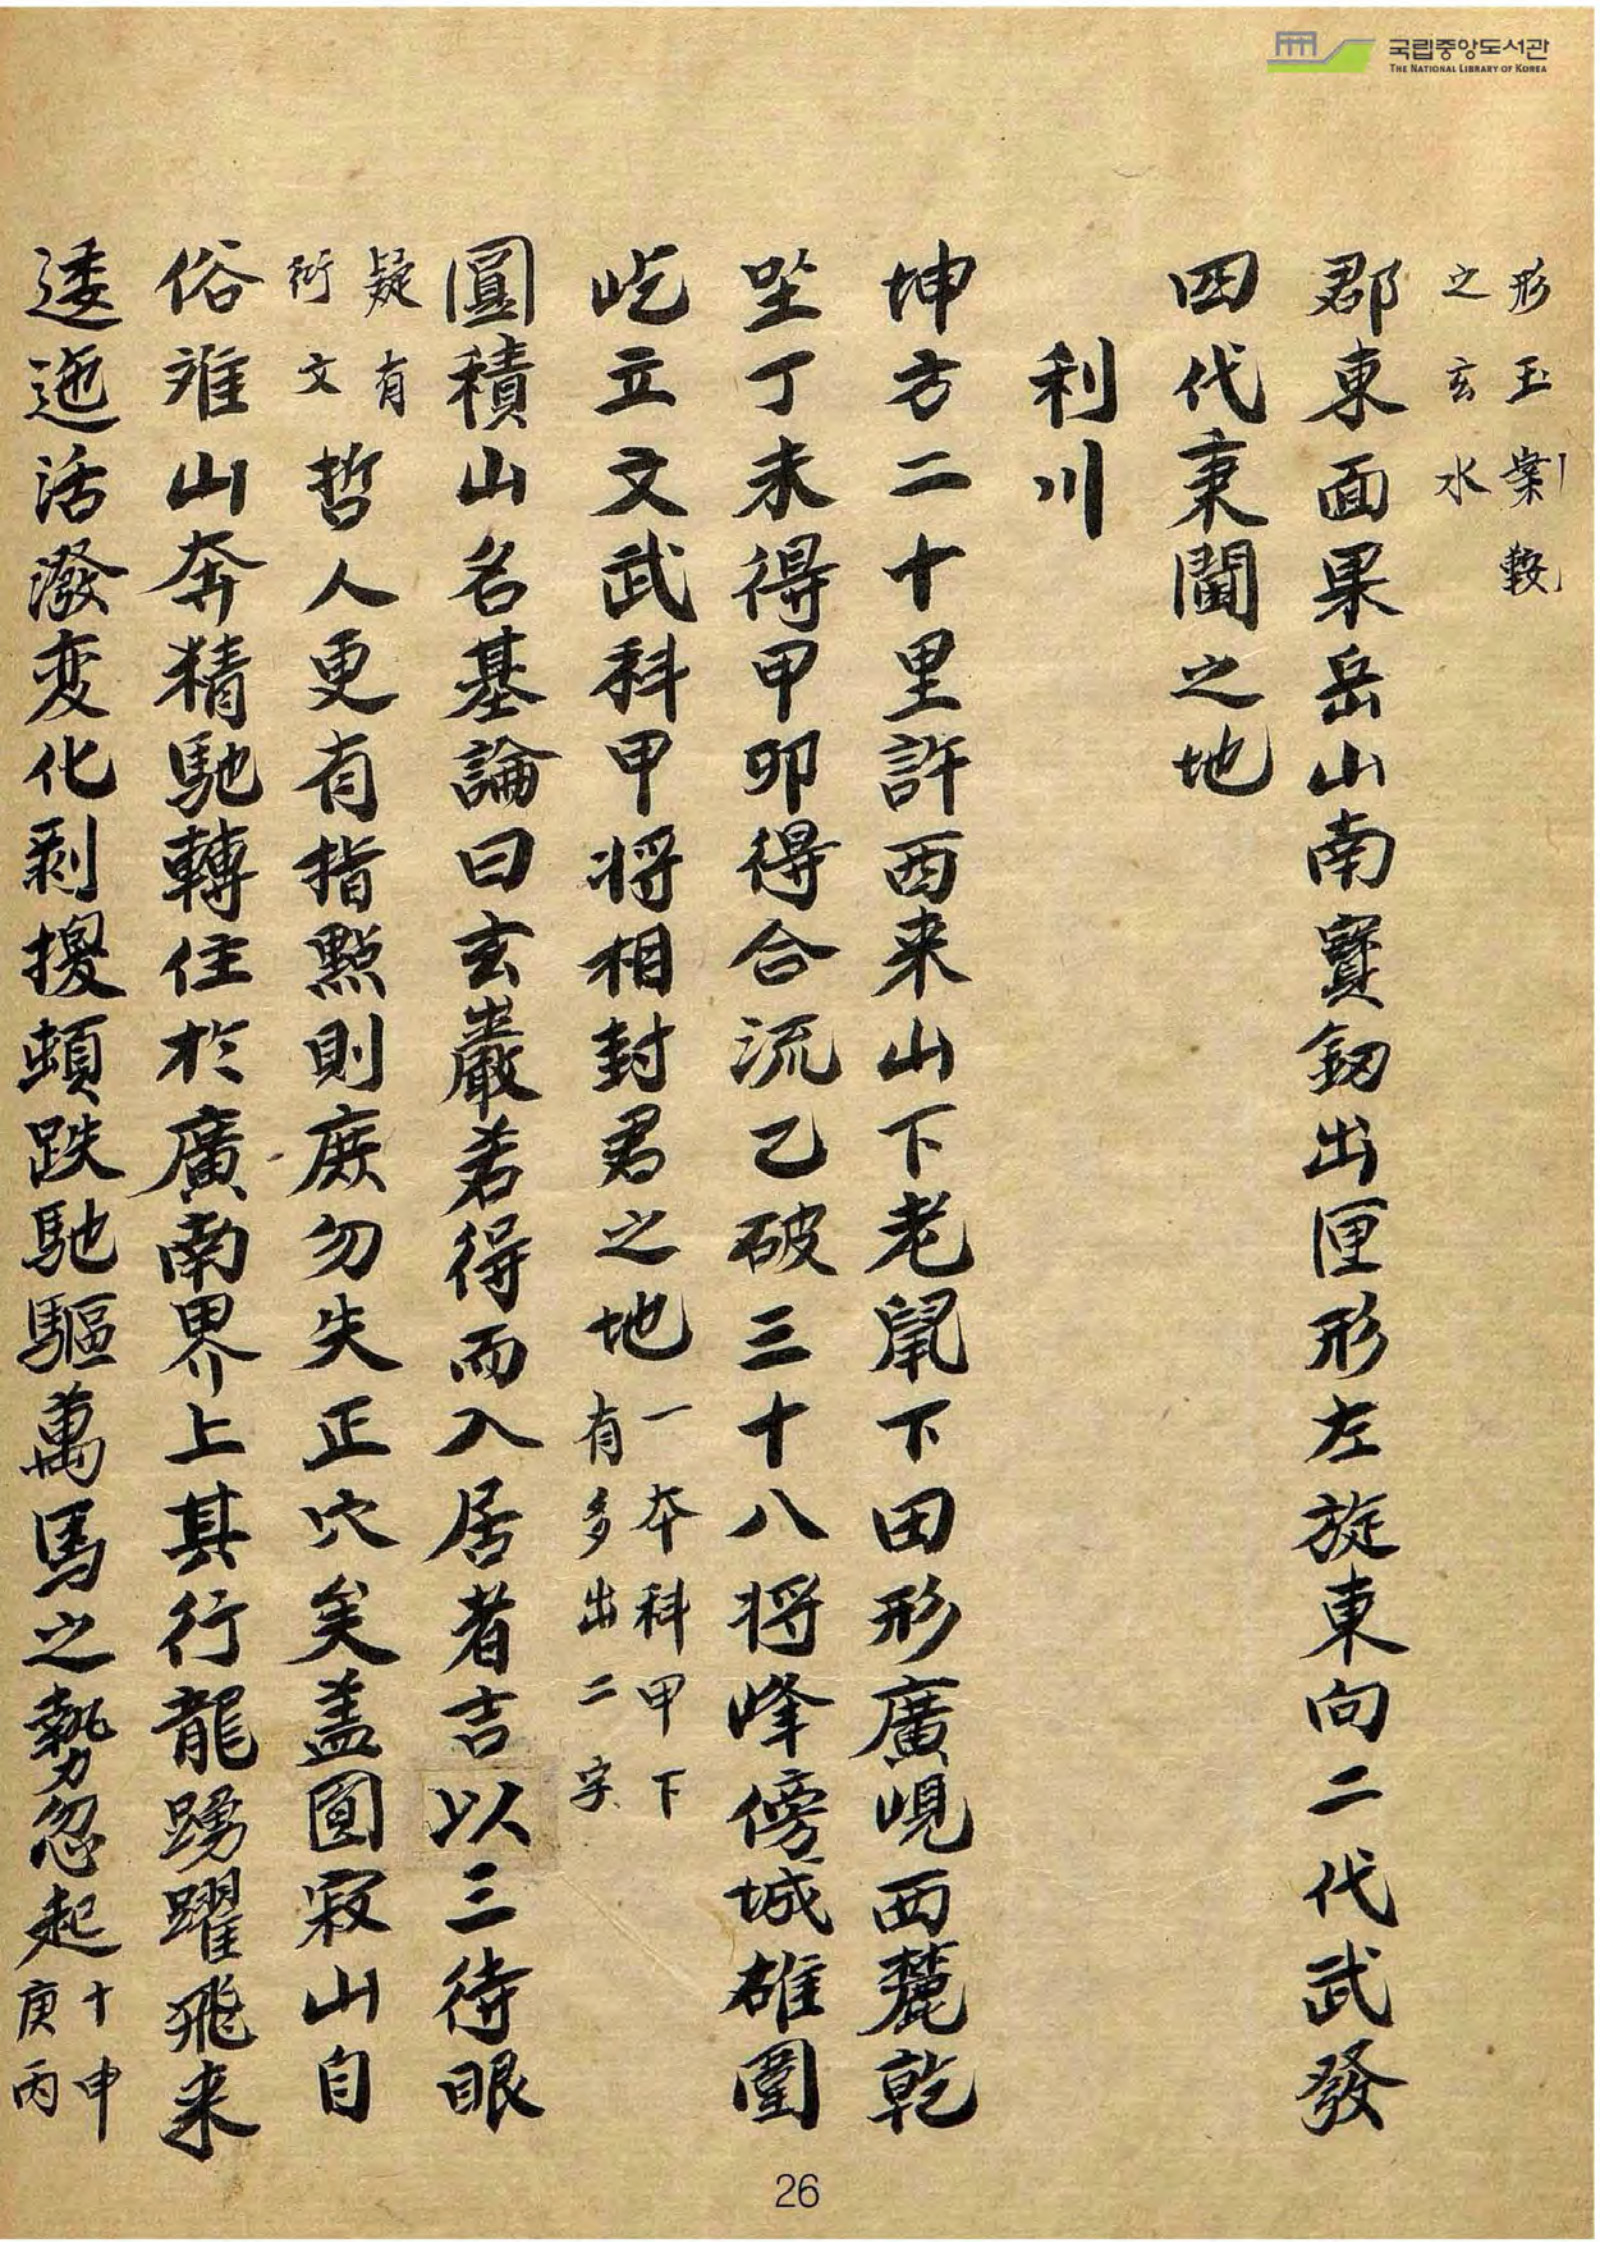 국립중앙도서관
THE NATIONAL LIBRARY OF KOREA
形玉案
之玄水
郡東面果岳山南寶釼出匣形左旋東向二代武發
四代秉閫之地
利川
坤方二十里許西来山下老鼠下田形廣峴西麓乾
坐丁未得甲卯得合流乙破三十八將峰傍城雄圍
屹立文武科甲将相封君之地
一本科甲下
有多出二字
圓積山名基論曰玄巖若得而入居者吉以三待眼
疑有
衍文
哲人更有指點則庶勿失正穴矣盖圓寂山自
俗雅山奔精馳轉住於廣南界上其行龍踴躍飛来
逶迤活潑变化剥換頓跌馳驅萬馬之勢忽起
十申
庚丙
26